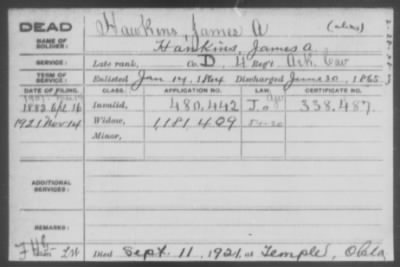 DEAD
Hawkins, James A
(alias)
NAME OF SOLDIER:
Hankins, James A.
SERVICE:
Late rank, Co. D, 4 Reg't Ark. Cav
TERM OF SERVICE:
Enlisted Jan 14, 1864 Discharged June 30, 1865
DATE OF FILING. CLASS. APPLICATION NO. LAW. CERTIFICATE NO.
1883 Invalid, 480,442 338,487
1921 Nov 14 Widow, 1,181,409
Minor,
ADDITIONAL SERVICES:
REMARKS:
Died Sept. 11, 1921, at Temple, Okla